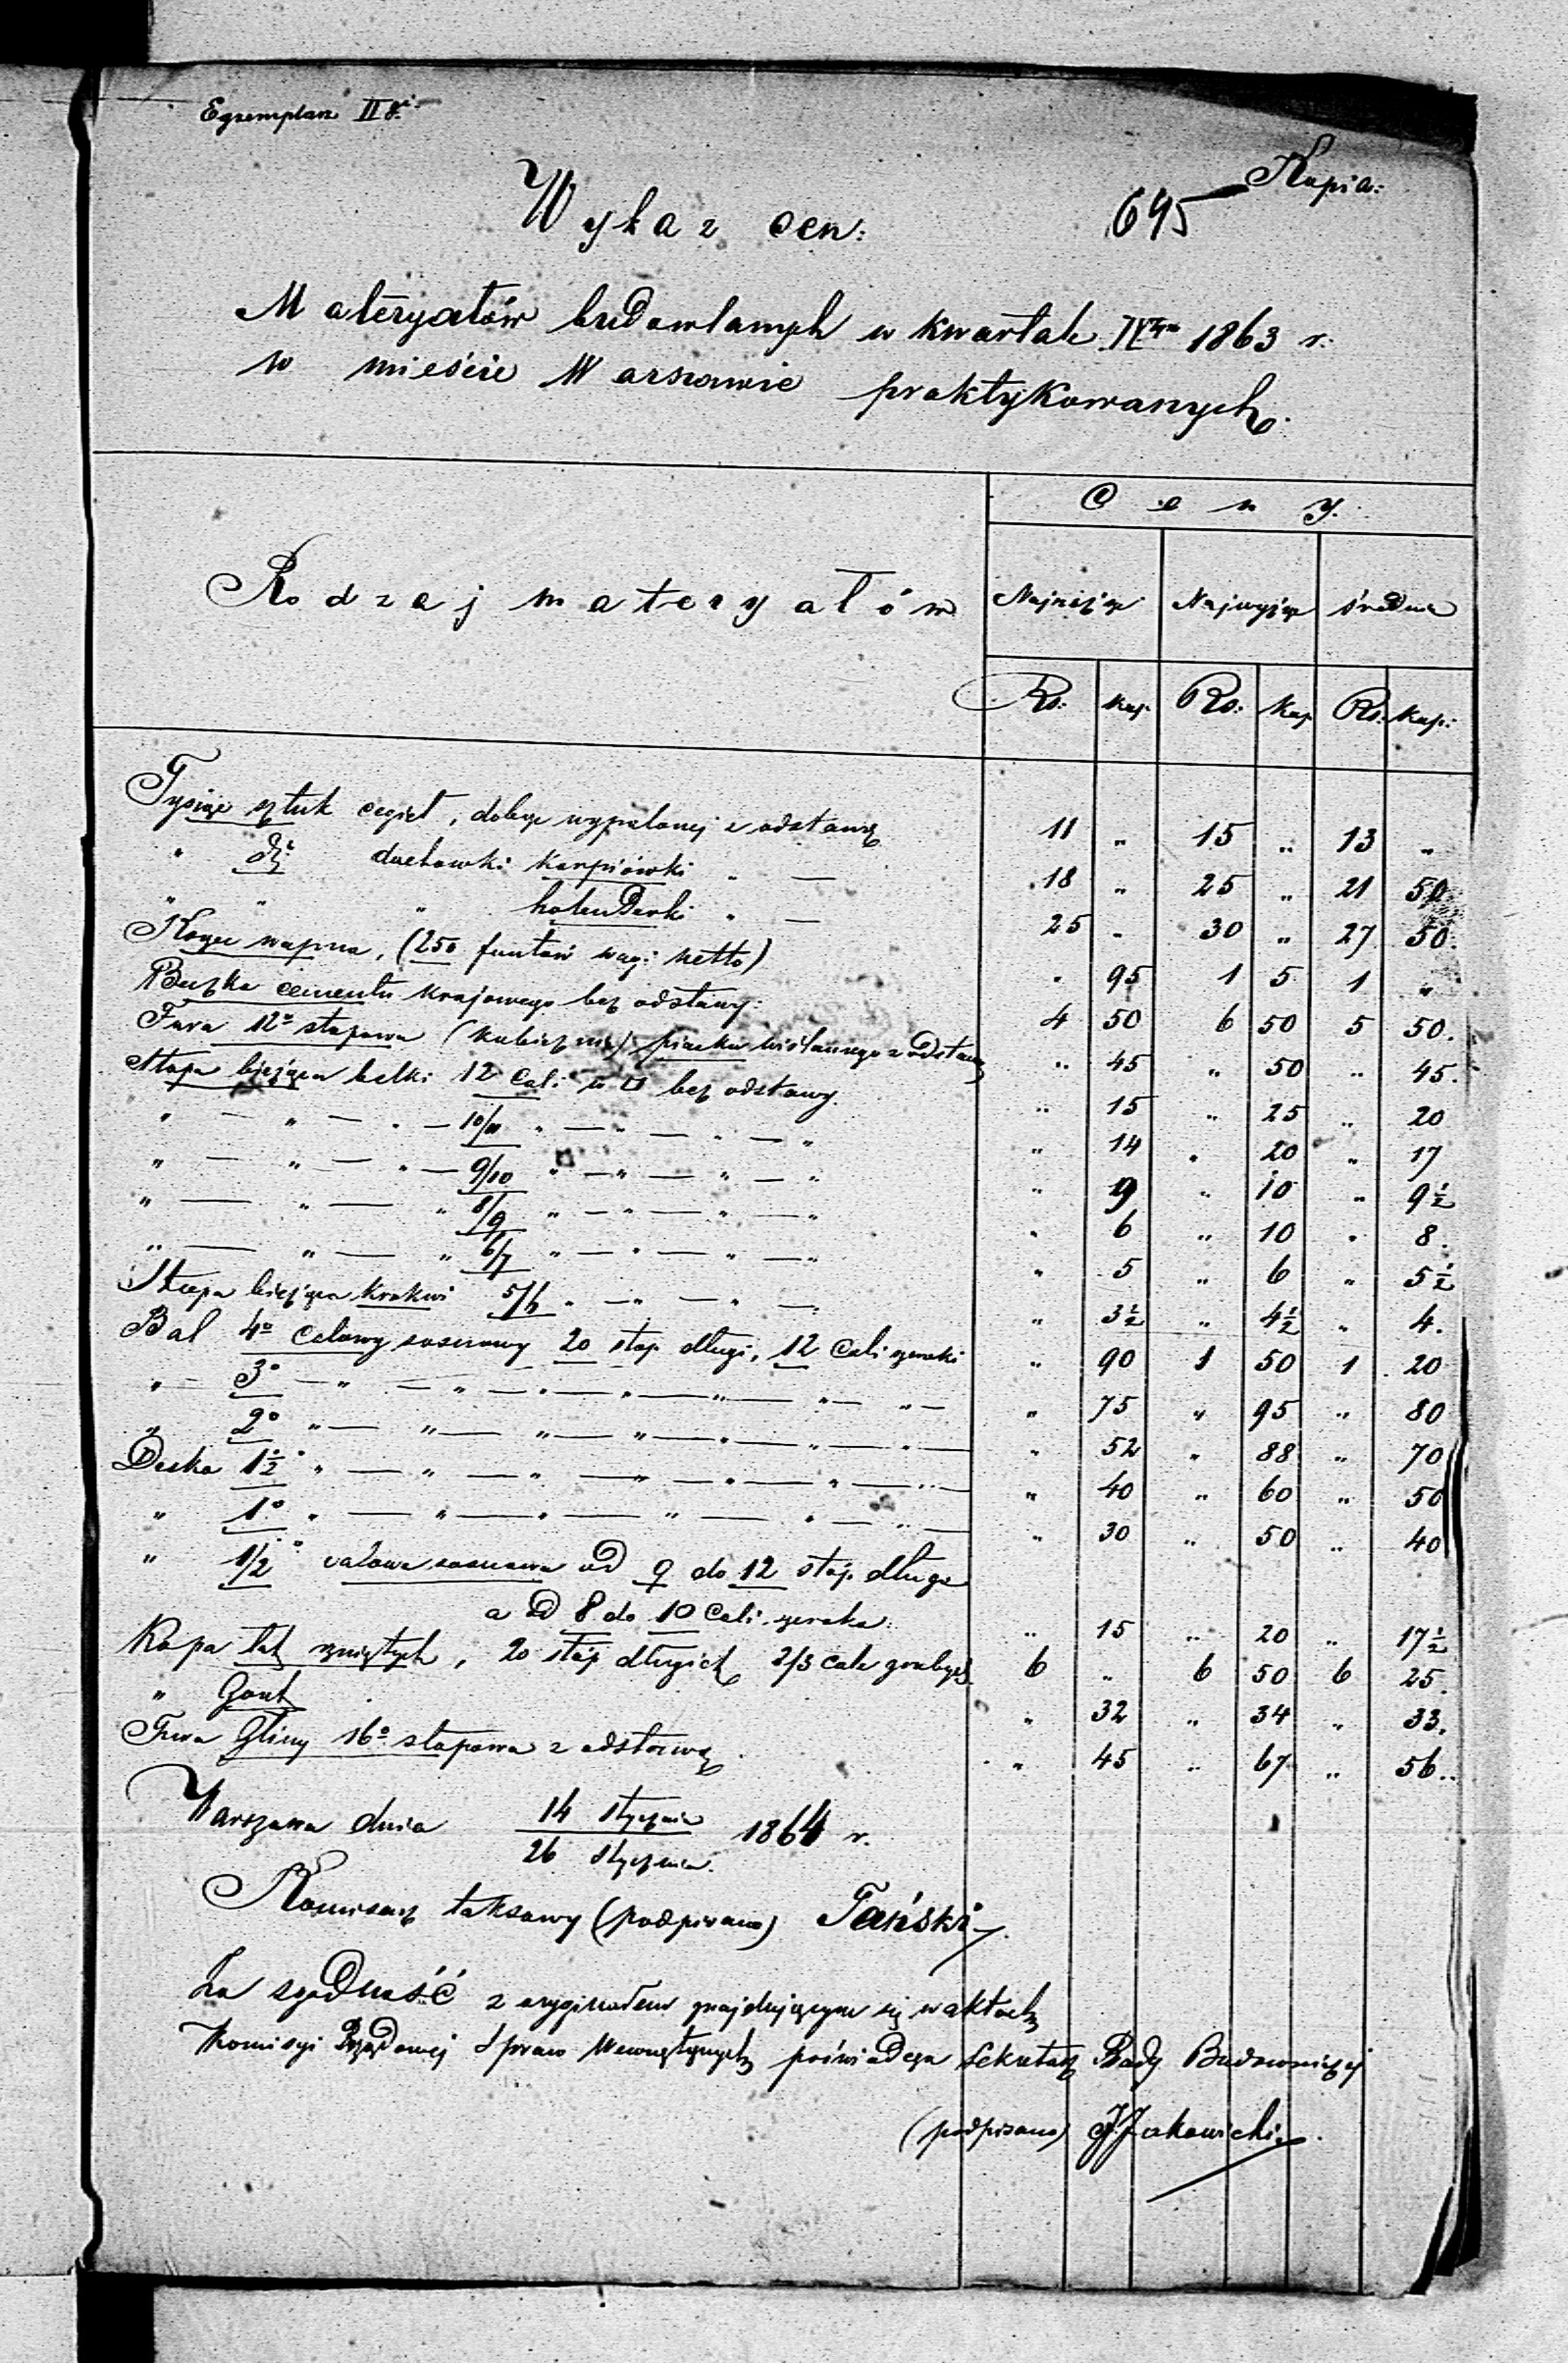 Egzemplarz II gi.
Kopia:
Wykaz cen:
695
Materyałów budowlanych w kwartale IVtym 1863 r.
w mieście Warszawie praktykowanych.
Ceny.
Rodzaj materyałów
Najniższe Najwyższe średnie
Rs: kop. Rs: kop. Rs: kop:
Tysiąc sztuk cegieł, dobrze wypalonej z odstawą 11 „ 15 „ 13 „
„ dt. dachowki karpiówki „ — 18 „ 25 „ 21 50.
„ „ „ holenderki „ — 25 „ 30 „ 27 50.
Korzec wapna, (250 funtów wagi netto) „ 95 1 5 1 „
Beczka cementu krajowego bez odstawy: 4 50 6 50 5 50.
Fura 12o stopowa (kubiczna) piasku wiślanego z odstawą „ 45 „ 50 „ 45.
Stopa bieżąca belki 12 cali w □ bez odstawy. „ 15 „ 25 „ 20
„ — „ — „ — 10/11 „ — „ — „ — „ „ 14 „ 20 „ 17
„ — „ — „ — 9/10 „ — „ — „ — „ „ 9 „ 10 „ 9½
„ — „ — „ 8/9 „ — „ — „ — „ „ 6 „ 10 „ 8.
„ — „ — „ 6/7 „ — „ — „ — „ „ 5 „ 6 „ 5½
Stopa bieżąca krokwi 5/6 „ — „ — „ — „ „ 3½ „ 4½ „ 4.
Bal 4o calowy sosnowy 20 stóp długi, 12 cali szeroki „ 90 1 50 1 20
„ — 3o — „ — „ — „ — „ — „ — „ — „ — „ 75 „ 95 „ 80
„ 2o „ — „ — „ — „ — „ — „ — „ — „ 52 „ 88 „ 70
Deska 1½ „ — „ — „ — „ — „ — „ — „ 40 „ 60 „ 50
„ 1o „ — „ — „ — „ — „ — „ — „ 30 „ 50 „ 40
„ 1/2 calowa sosnowa od 9 do 12 stóp długa
a od 8 do 10 cali szeroka: „ 15 „ 20 „ 17½
Kopa łat rzniętych, 20 stóp długich 2/3 cale grubych 6 „ 6 50 6 25.
„ Gont „ 32 „ 34 „ 33.
Fura Gliny 16o stopowa z odstawą. „ 45 „ 67 „ 56.
Warszawa dnia 14 stycznia
26 stycznia 1864 r.
Komisarz taksowy (podpisano) Tański
Za zgodność z oryginałem znajdującym się w aktach
Komisyi Rządowej Spraw Wewnętrznych poświadcza Sekretarz Rady Budowniczej
(podpisano)